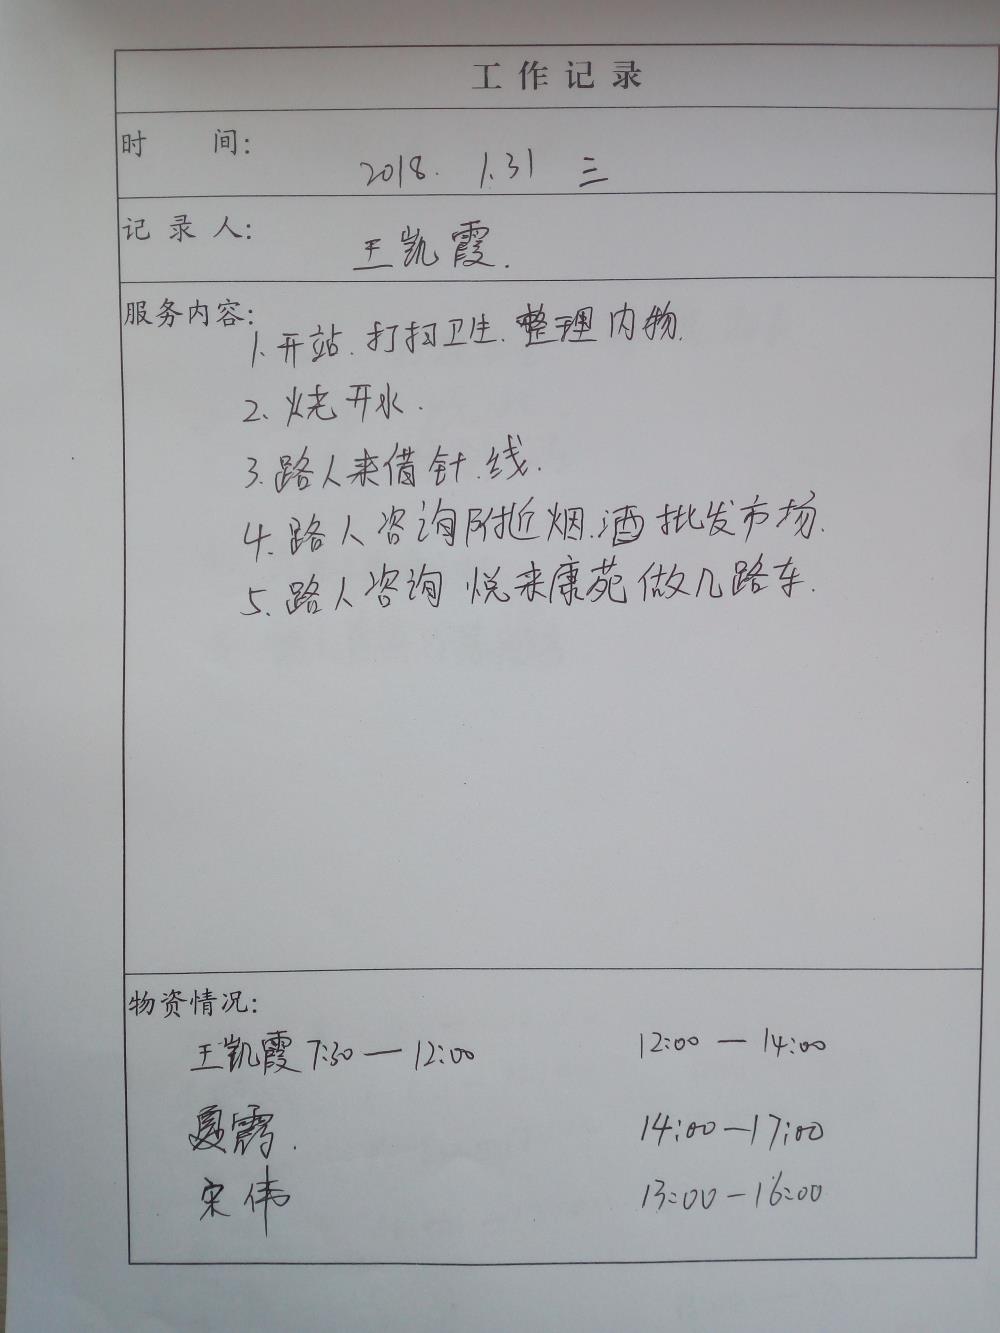 工作记录
时 间：
2018. 1.31 三
记录人：
王凯霞.
服务内容：
1. 开站. 打扫卫生. 整理内物.
2. 烧开水.
3. 路人来借针.线.
4. 路人咨询附近烟.酒批发市场.
5. 路人咨询 悦来康苑做几路车.
物资情况：
王凯霞 7:30 — 12:00 12:00 — 14:00
14:00 — 17:00
宋伟 13:00 — 16:00